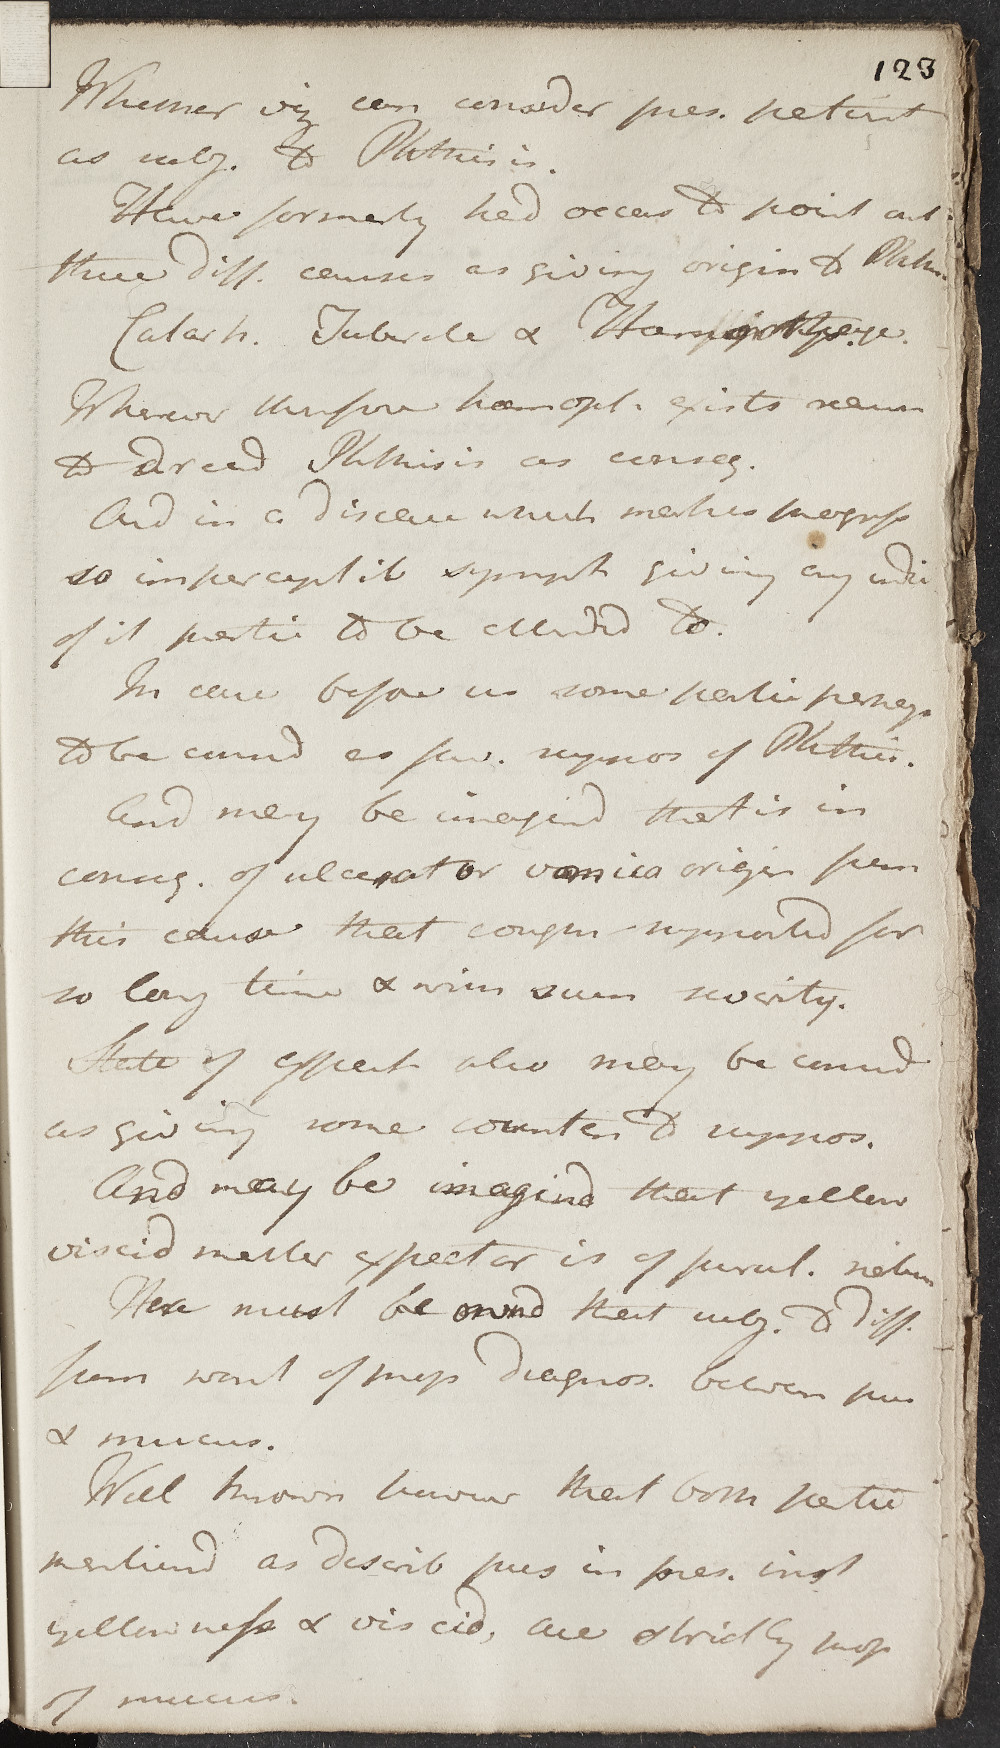 123
Whether viz can consider pres. patient
as subj. to Phthisis.
Have formerly had occas to point out
three diff. causes as giving origin to Phthis.
Catarh. Tubercle & 
Wherever therefore hæmopt. exists reason
to dread Phthisis as conseq.
And in a disease which makes progress
so imperceptib symph giving any indic
of it partic to be attended to.
In case before us some partic perhaps
to be consd as fav. suppos of Phthis.
And may be imagind that is in
conseq. of ulcerat or vomica origin from
this cause that cough supported for
so long time & with such severity.
State of expect also may be consd
as giving some counten to suppos.
And may be imagind that yellow
viscid matter expector is of purul. nature
Here must be ownd that subj. to diff.
from want of prop diagnos. between pus
& mucus.
Well known however that both partic
mentiond as describ pus in pres. inst
yellowness & viscid, are strictly prop
of mucus.